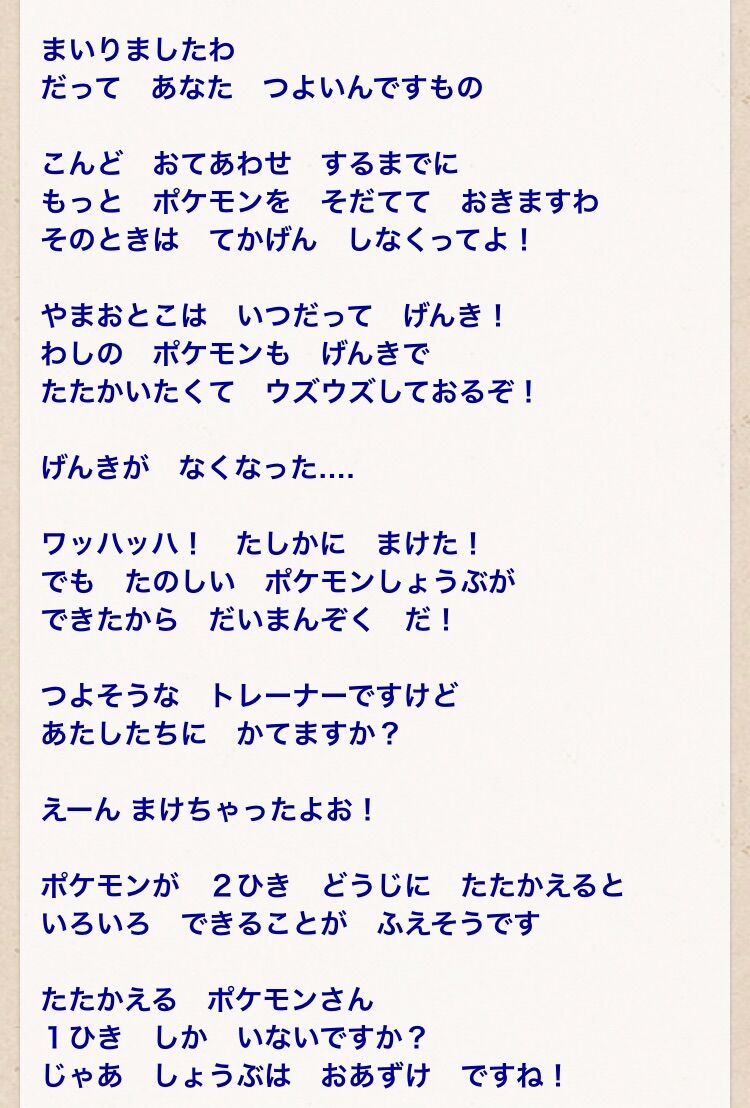 まいりましたわ
だって　あなた　つよいんですもの
こんど　おてあわせ　するまでに
もっと　ポケモンを　そだてて　おきますわ
そのときは　てかげん　しなくってよ！
やまおとこは　いつだって　げんき！
わしの　ポケモンも　げんきで
たたかいたくて　ウズウズしておるぞ！
げんきが　なくなった‥‥
ワッハッハ！　たしかに　まけた！
でも　たのしい　ポケモンしょうぶが
できたから　だいまんぞく　だ！
つよそうな　トレーナーですけど
あたしたちに　かてますか？
えーん まけちゃったよお！
ポケモンが　２ひき　どうじに　たたかえると
いろいろ　できることが　ふえそうです
たたかえる　ポケモンさん
１ひき　しか　いないですか？
じゃあ　しょうぶは　おあずけ　ですね！